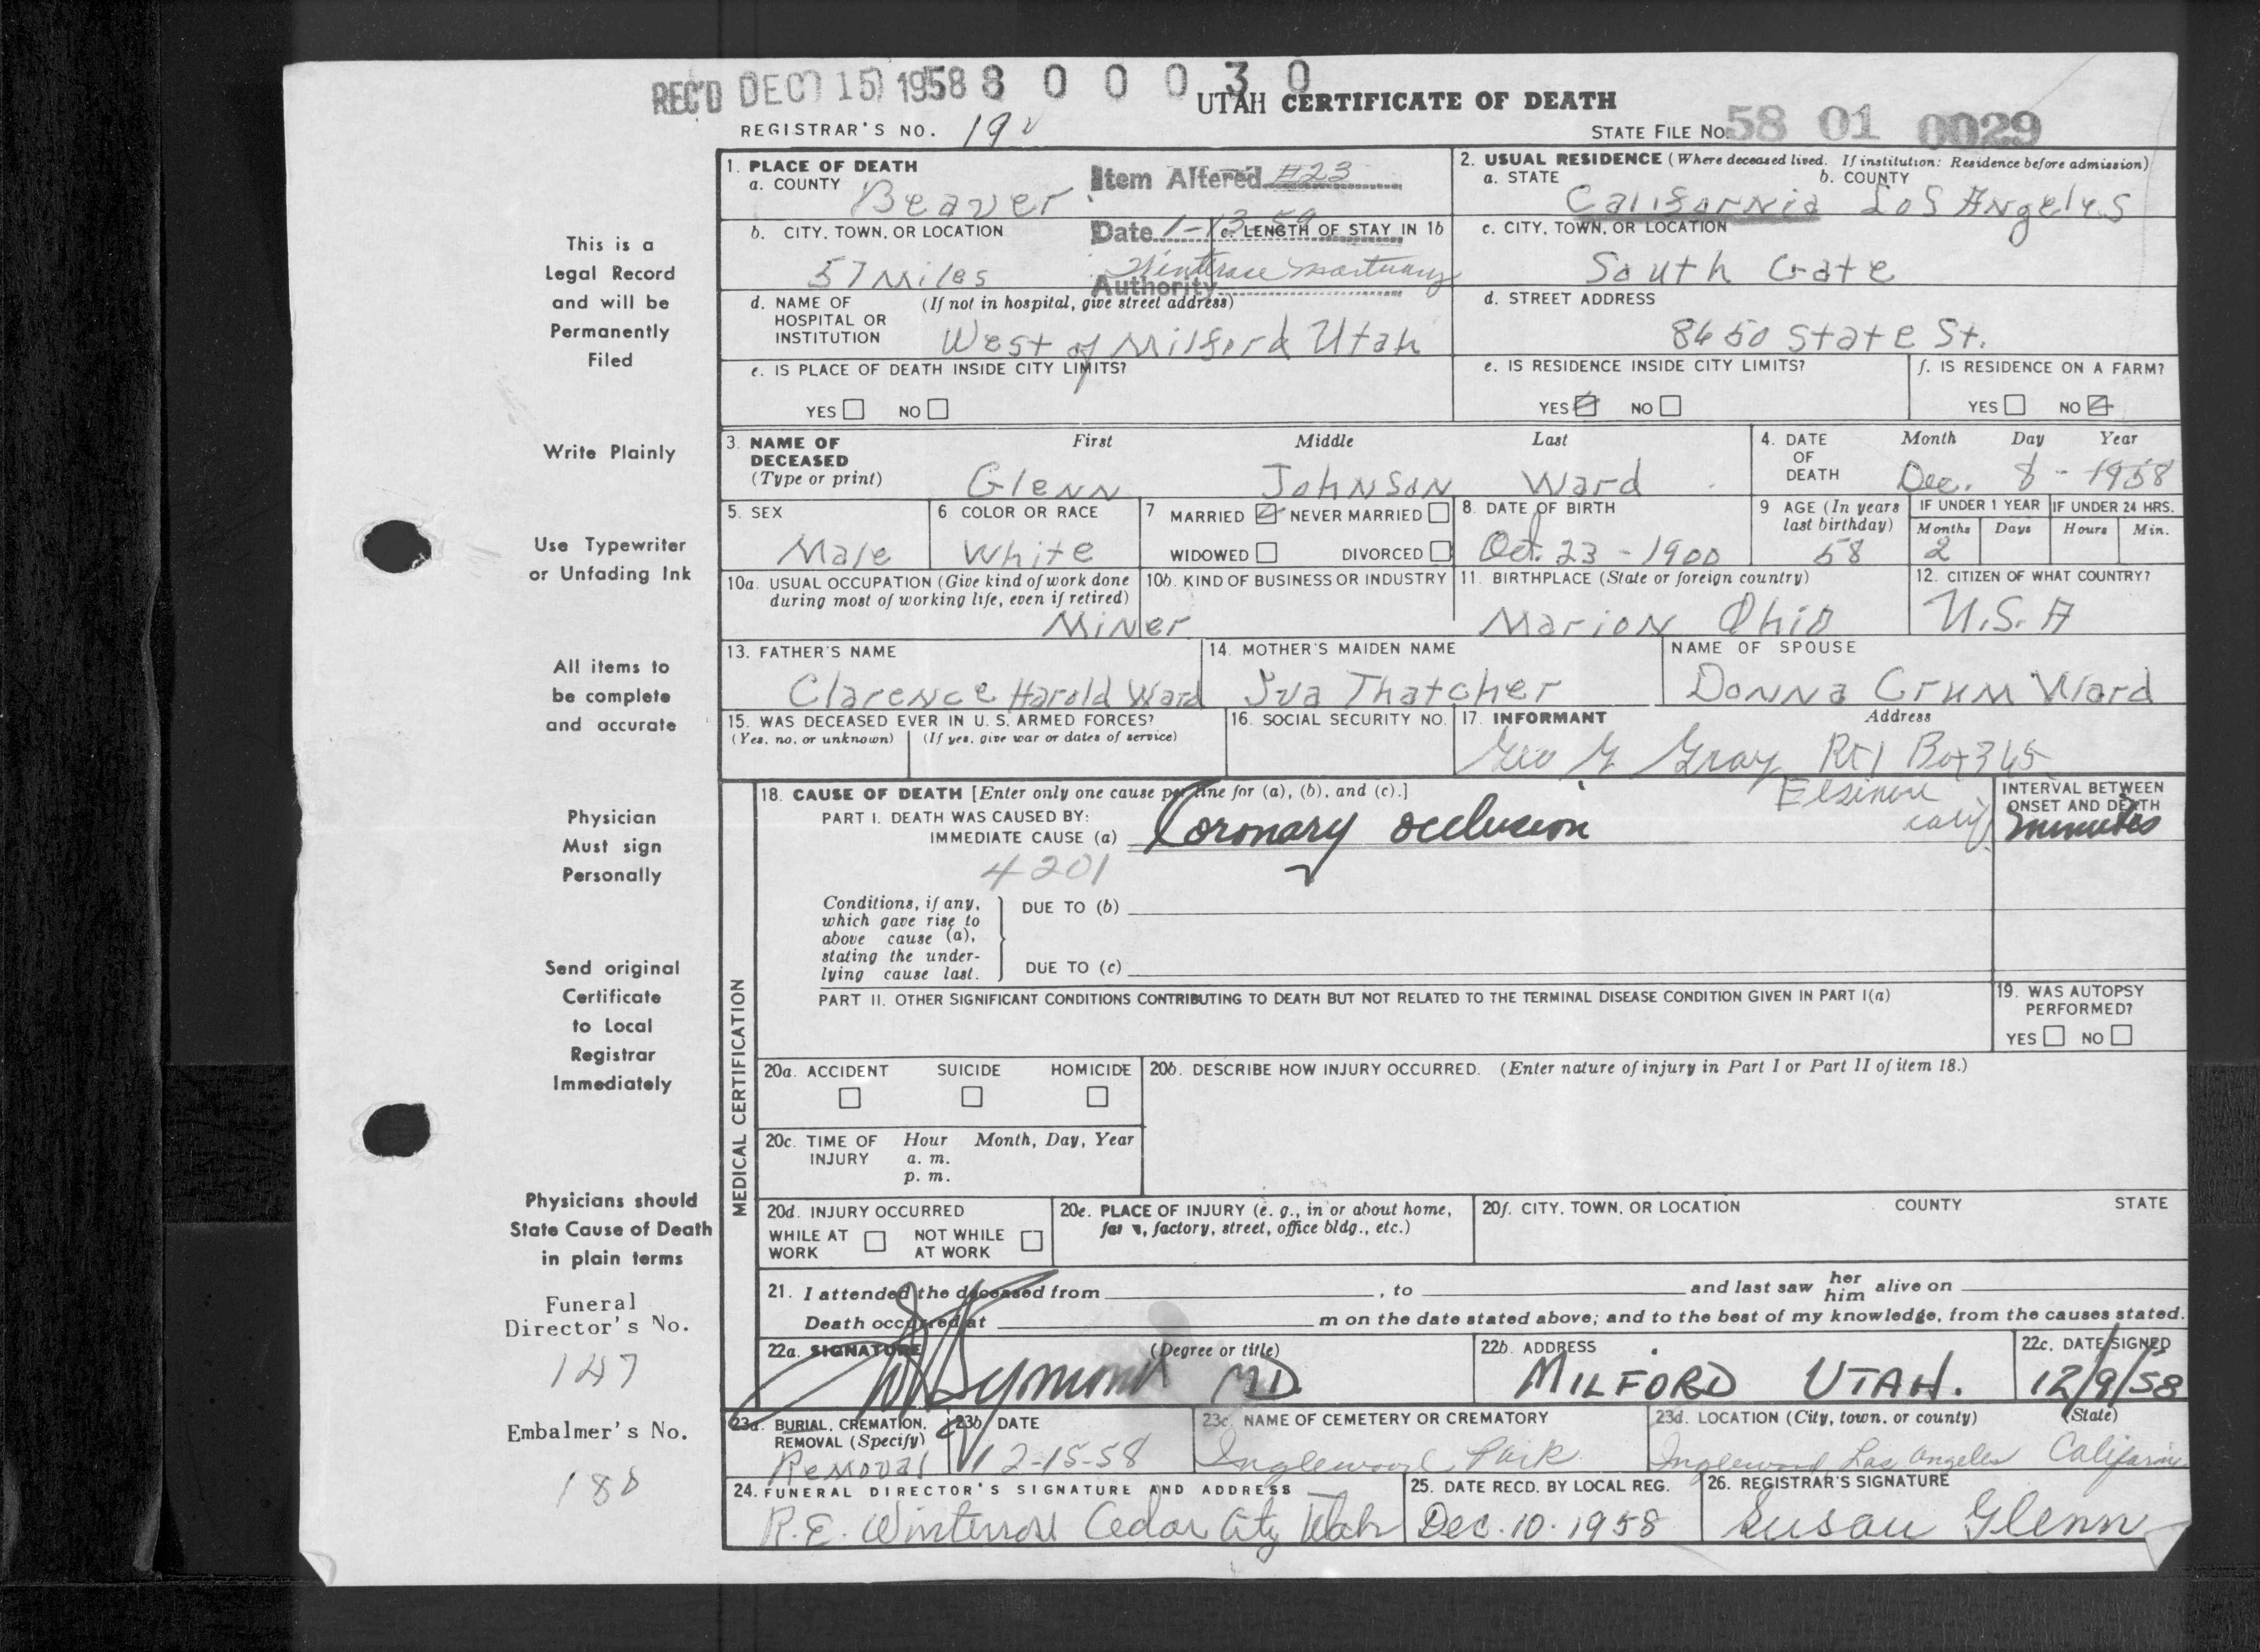 REC'D DEC 15 1958 8 0 0 0 3 0
UTAH CERTIFICATE OF DEATH
REGISTRAR'S NO. 19
STATE FILE No. 58 01 0029
1. PLACE OF DEATH
a. COUNTY Beaver
Item Altered #23
2. USUAL RESIDENCE (Where deceased lived. If institution: Residence before admission)
a. STATE California b. COUNTY Los Angeles
b. CITY, TOWN, OR LOCATION 57 Miles
Date 1-13-59 c. LENGTH OF STAY IN 1b
Authority Winterose Mortuary
c. CITY, TOWN, OR LOCATION South Gate
d. NAME OF HOSPITAL OR INSTITUTION (If not in hospital, give street address)
West of Milford Utah
d. STREET ADDRESS
8650 State St.
e. IS PLACE OF DEATH INSIDE CITY LIMITS?
YES NO
e. IS RESIDENCE INSIDE CITY LIMITS?
YES NO
f. IS RESIDENCE ON A FARM?
YES NO
3. NAME OF DECEASED (Type or print)
First Middle Last
Glenn Johnson Ward
4. DATE OF DEATH Month Day Year
Dec. 8 - 1958
5. SEX Male
6. COLOR OR RACE White
7 MARRIED NEVER MARRIED
WIDOWED DIVORCED
8. DATE OF BIRTH Oct. 23 - 1900
9 AGE (In years last birthday) 58
IF UNDER 1 YEAR Months Days 2
IF UNDER 24 HRS. Hours Min.
10a. USUAL OCCUPATION (Give kind of work done during most of working life, even if retired)
Miner
10b. KIND OF BUSINESS OR INDUSTRY
11. BIRTHPLACE (State or foreign country)
Marion Ohio
12. CITIZEN OF WHAT COUNTRY?
U.S.A
13. FATHER'S NAME
Clarence Harold Ward
14. MOTHER'S MAIDEN NAME
Iva Thatcher
NAME OF SPOUSE
Donna Crum Ward
15. WAS DECEASED EVER IN U. S. ARMED FORCES?
(Yes, no, or unknown) (If yes, give war or dates of service)
16. SOCIAL SECURITY NO.
17. INFORMANT Address
Geo G Gray Rt 1 Box 345
Elsinore
calif
MEDICAL CERTIFICATION
18. CAUSE OF DEATH [Enter only one cause per line for (a), (b), and (c).]
PART I. DEATH WAS CAUSED BY:
IMMEDIATE CAUSE (a) Coronary occlusion
INTERVAL BETWEEN ONSET AND DEATH
minutes
4201
Conditions, if any, which gave rise to above cause (a), stating the underlying cause last.
DUE TO (b)
DUE TO (c)
PART II. OTHER SIGNIFICANT CONDITIONS CONTRIBUTING TO DEATH BUT NOT RELATED TO THE TERMINAL DISEASE CONDITION GIVEN IN PART I(a)
19. WAS AUTOPSY PERFORMED?
YES NO
20a. ACCIDENT SUICIDE HOMICIDE
20b. DESCRIBE HOW INJURY OCCURRED. (Enter nature of injury in Part I or Part II of item 18.)
20c. TIME OF INJURY Hour Month, Day, Year
a. m.
p. m.
20d. INJURY OCCURRED
WHILE AT WORK NOT WHILE AT WORK
20e. PLACE OF INJURY (e. g., in or about home, farm, factory, street, office bldg., etc.)
20f. CITY, TOWN, OR LOCATION COUNTY STATE
21. I attended the deceased from , to and last saw her him alive on
Death occurred at m on the date stated above; and to the best of my knowledge, from the causes stated.
22a. SIGNATURE (Degree or title)
Symond MD.
22b. ADDRESS
MILFORD UTAH.
22c. DATE SIGNED
12/9/58
23a. BURIAL, CREMATION, REMOVAL (Specify)
Removal
23b. DATE
12-15-58
23c. NAME OF CEMETERY OR CREMATORY
Inglewood Park
23d. LOCATION (City, town, or county) (State)
Inglewood Los Angeles California
24. FUNERAL DIRECTOR'S SIGNATURE AND ADDRESS
R.E. Winterrose Cedar City Utah
25. DATE RECD. BY LOCAL REG.
Dec. 10. 1958
26. REGISTRAR'S SIGNATURE
Susan Glenn
This is a
Legal Record
and will be
Permanently
Filed
Write Plainly
Use Typewriter
or Unfading Ink
All items to
be complete
and accurate
Physician
Must sign
Personally
Send original
Certificate
to Local
Registrar
Immediately
Physicians should
State Cause of Death
in plain terms
Funeral
Director's No.
147
Embalmer's No.
188